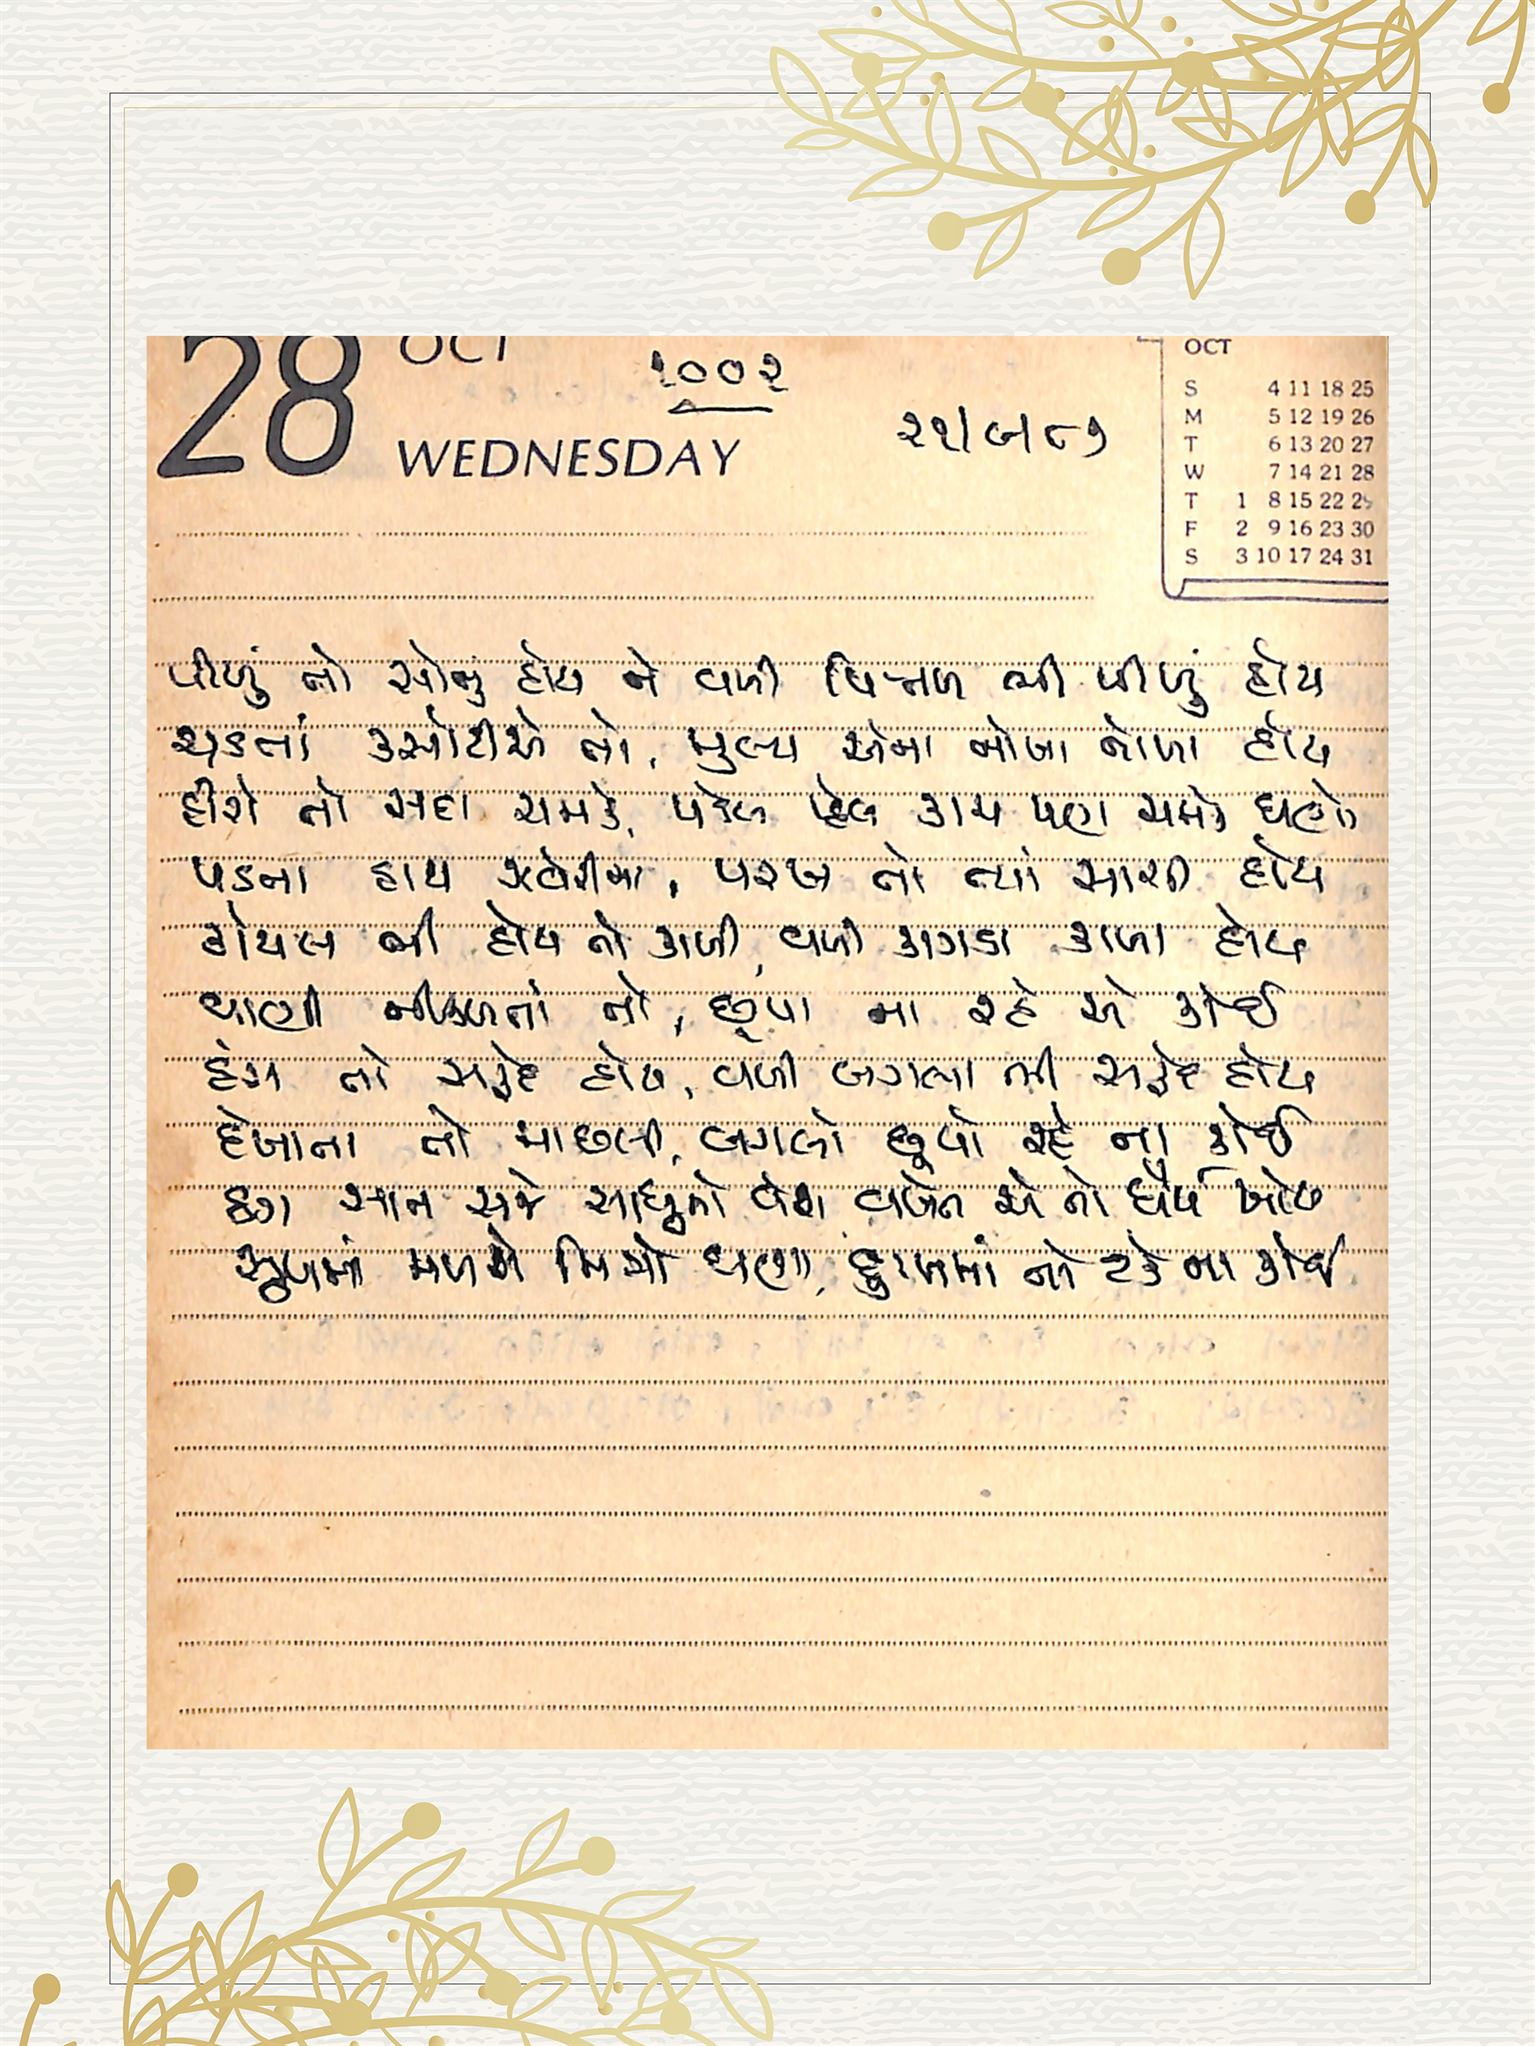 28 OCT
૧૦૦૨
WEDNESDAY
૨૧/૭/૮૭
OCT
S 4 11 18 25
M 5 12 19 26
T 6 13 20 27
W 7 14 21 28
T 1 8 15 22 29
F 2 9 16 23 30
S 3 10 17 24 31
પીળું તો સોનું હોય ને વળી પિત્તળ ભી પીળું હોય
ચડતાં કસોટીએ તો, મુલ્ય એના નોખા નોખા હોય
હીરો તો સદા ચમકે, પહેલ કાચ પણ ચમકે ઘણો
પડતા હાથ ઝવેરીમાં, પરખ તો ત્યાં સાચી હોય
કોયલ ભી હોય તો કાળી, વળી કાગડા કાળા હોય
વાણી નીકળતાં તો, છૂપા ના રહે એ કોઈ
હંસ તો સફેદ હોય, વળી બગલા ભી સફેદ હોય
દેખાતા તો માછલી, બગલો છૂપો રહે ના કોઈ
ઠગ સાન સજે સાધુનો વેશ વખત એ તો ધૈર્ય ખોય
સુખમાં મળશે મિત્રો ઘણા, દુઃખમાં તો ટકે ના કોઈ